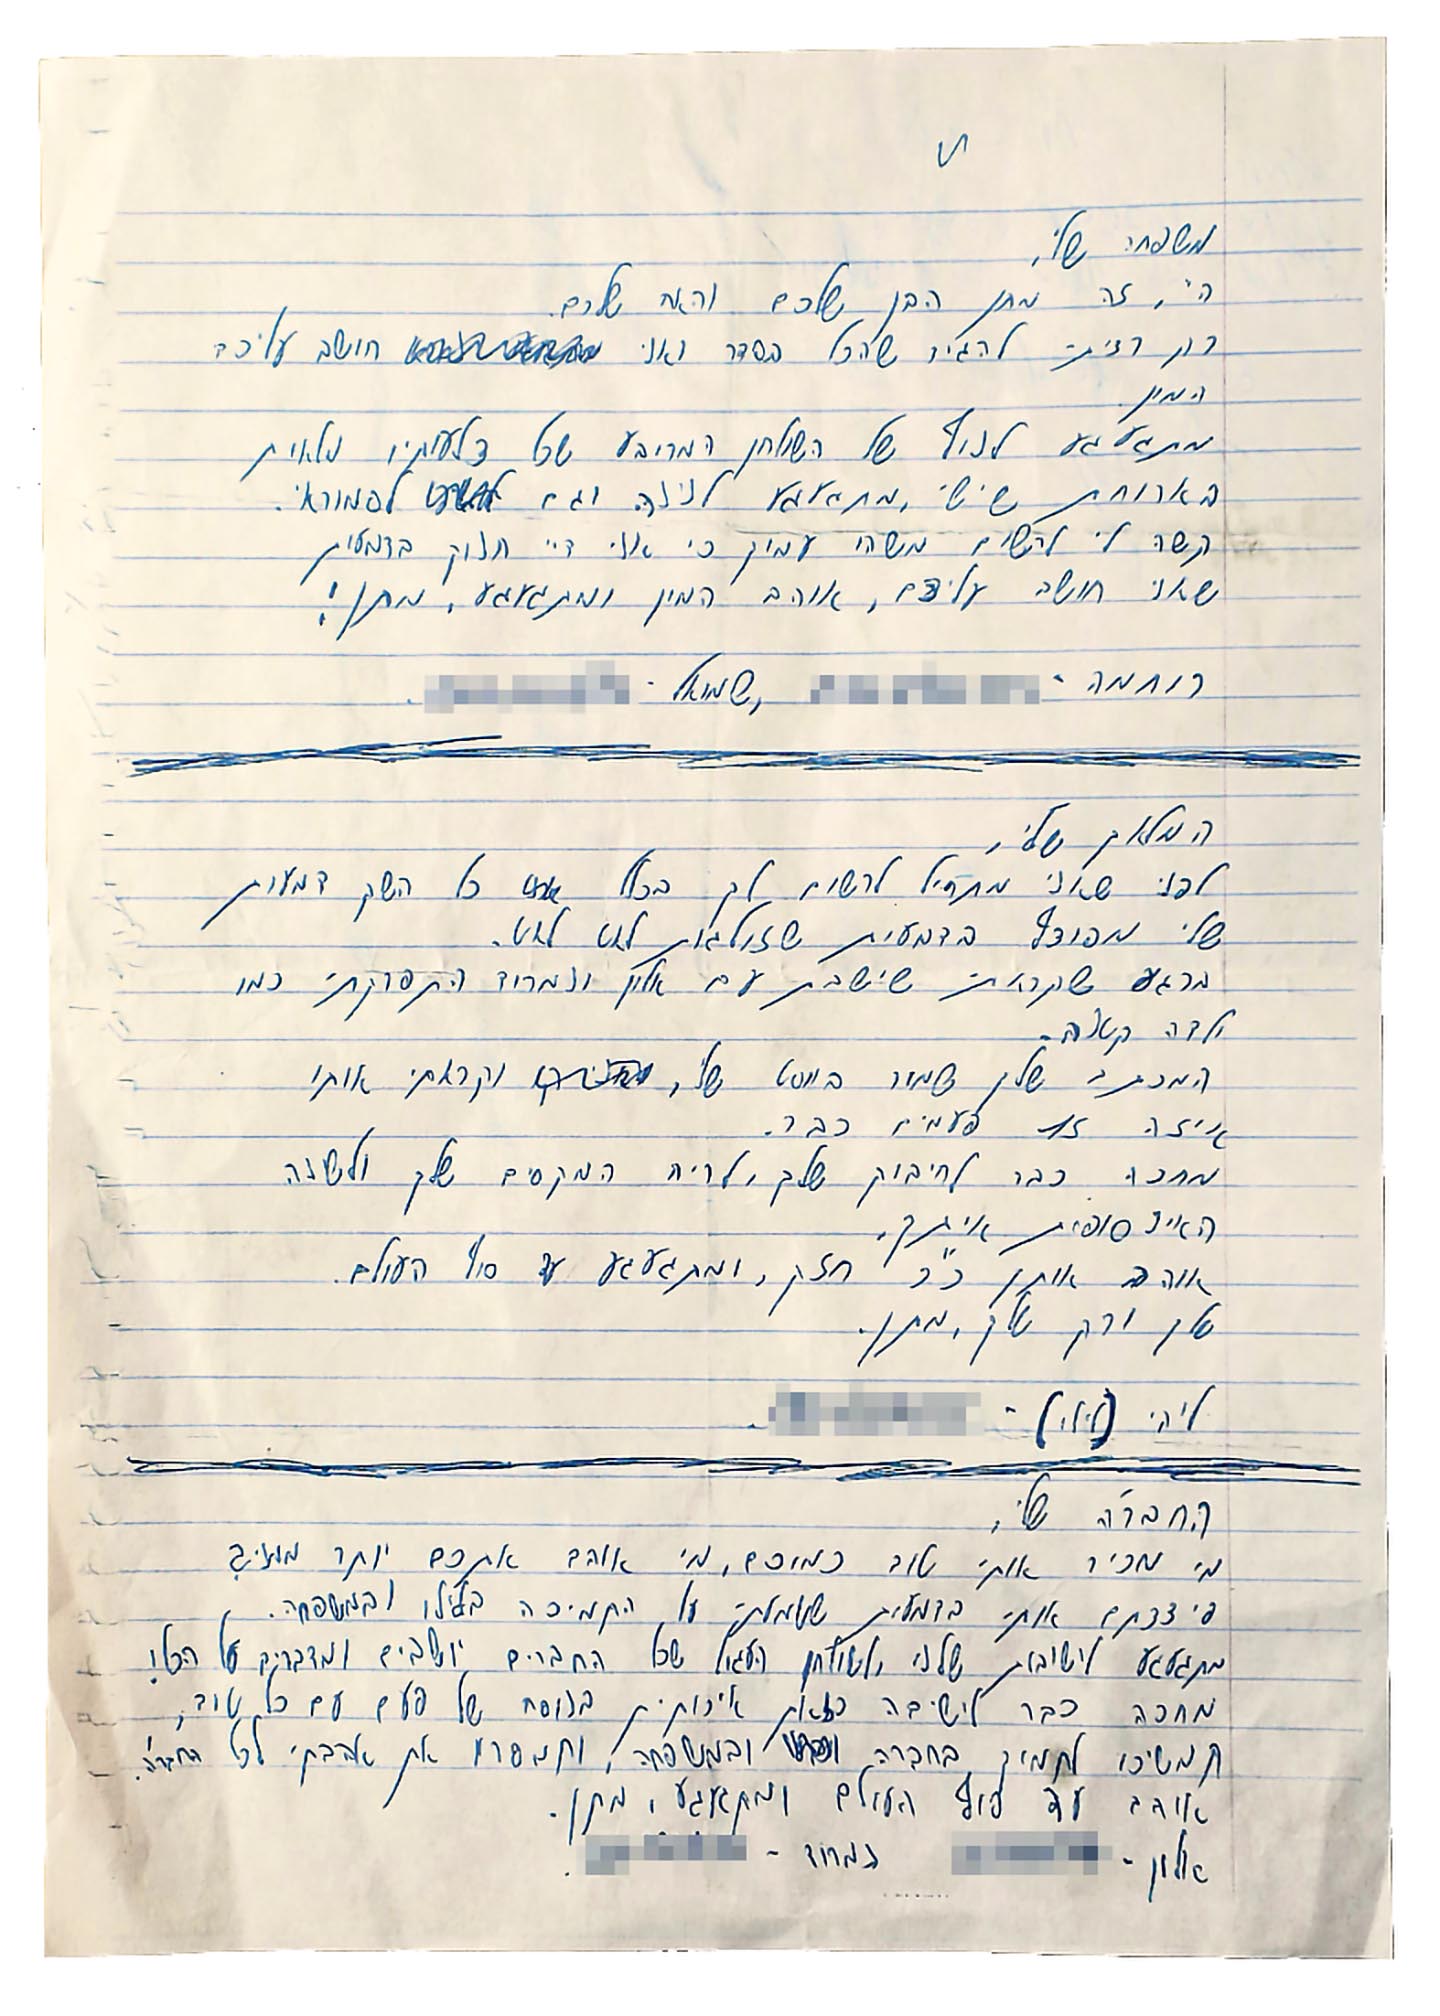 משפחה שלי,
היי, זה מתן הבן שלכם והאח שלכם.
רק רציתי להגיד שהכל בסדר ואני חושב עליכם
המון.
מתגעגע לנוף של השולחן המרובע שכל צלעותיו מלאות
בארוחת שישי, מתגעגע לנינה וגם לסמוראי.
קשה לי לרשום משהו עמוק כי אני דיי חנוק בדמעות
שאני חושב עליכם, אוהב המון ומתגעגע, מתן!
רוחמה - , שמואל - .
המלאך שלי,
לפני שאני מתחיל לרשום לך בכלל כל השק דמעות
שלי מפוצץ בדמעות שזולגות לאט לאט.
ברגע שקראתי שישבת עם אלון ונמרוד התפרקתי כמו
ילדה קטנה.
המכתב שלך שמור בווסט שלי, וקראתי אותו
איזה פעמים כבר.
מחכה כבר לחיבוק שלך, לריח המקסים שלך ולשנה
האינסופית איתך.
אוהב אותך כ"כ חזק, ומתגעגע עד סוף העולם.
שלך ורק שלך, מתן.
ליהי (לילי) - .
החבר'ה שלי,
מי מכיר אותי טוב כמוכם, מי אוהב אתכם יותר ממני?
פיצצתם אותי בדמעות ששמעתי על התמיכה בלילו ובמשפחה.
מתגעגע לישיבות שלנו ולשולחן העגול שכל החברים יושבים ומדברים על הכל!
מחכה כבר לישיבה כזאת איכותית בנוסח של פעם עם כל טוב,
תמשיכו לתמוך בחברה ובמשפחה, ותמסרו את אהבתי לכל החבר'ה.
אוהב עד סוף העולם ומתגעגע, מתן.
אלון - נמרוד - .